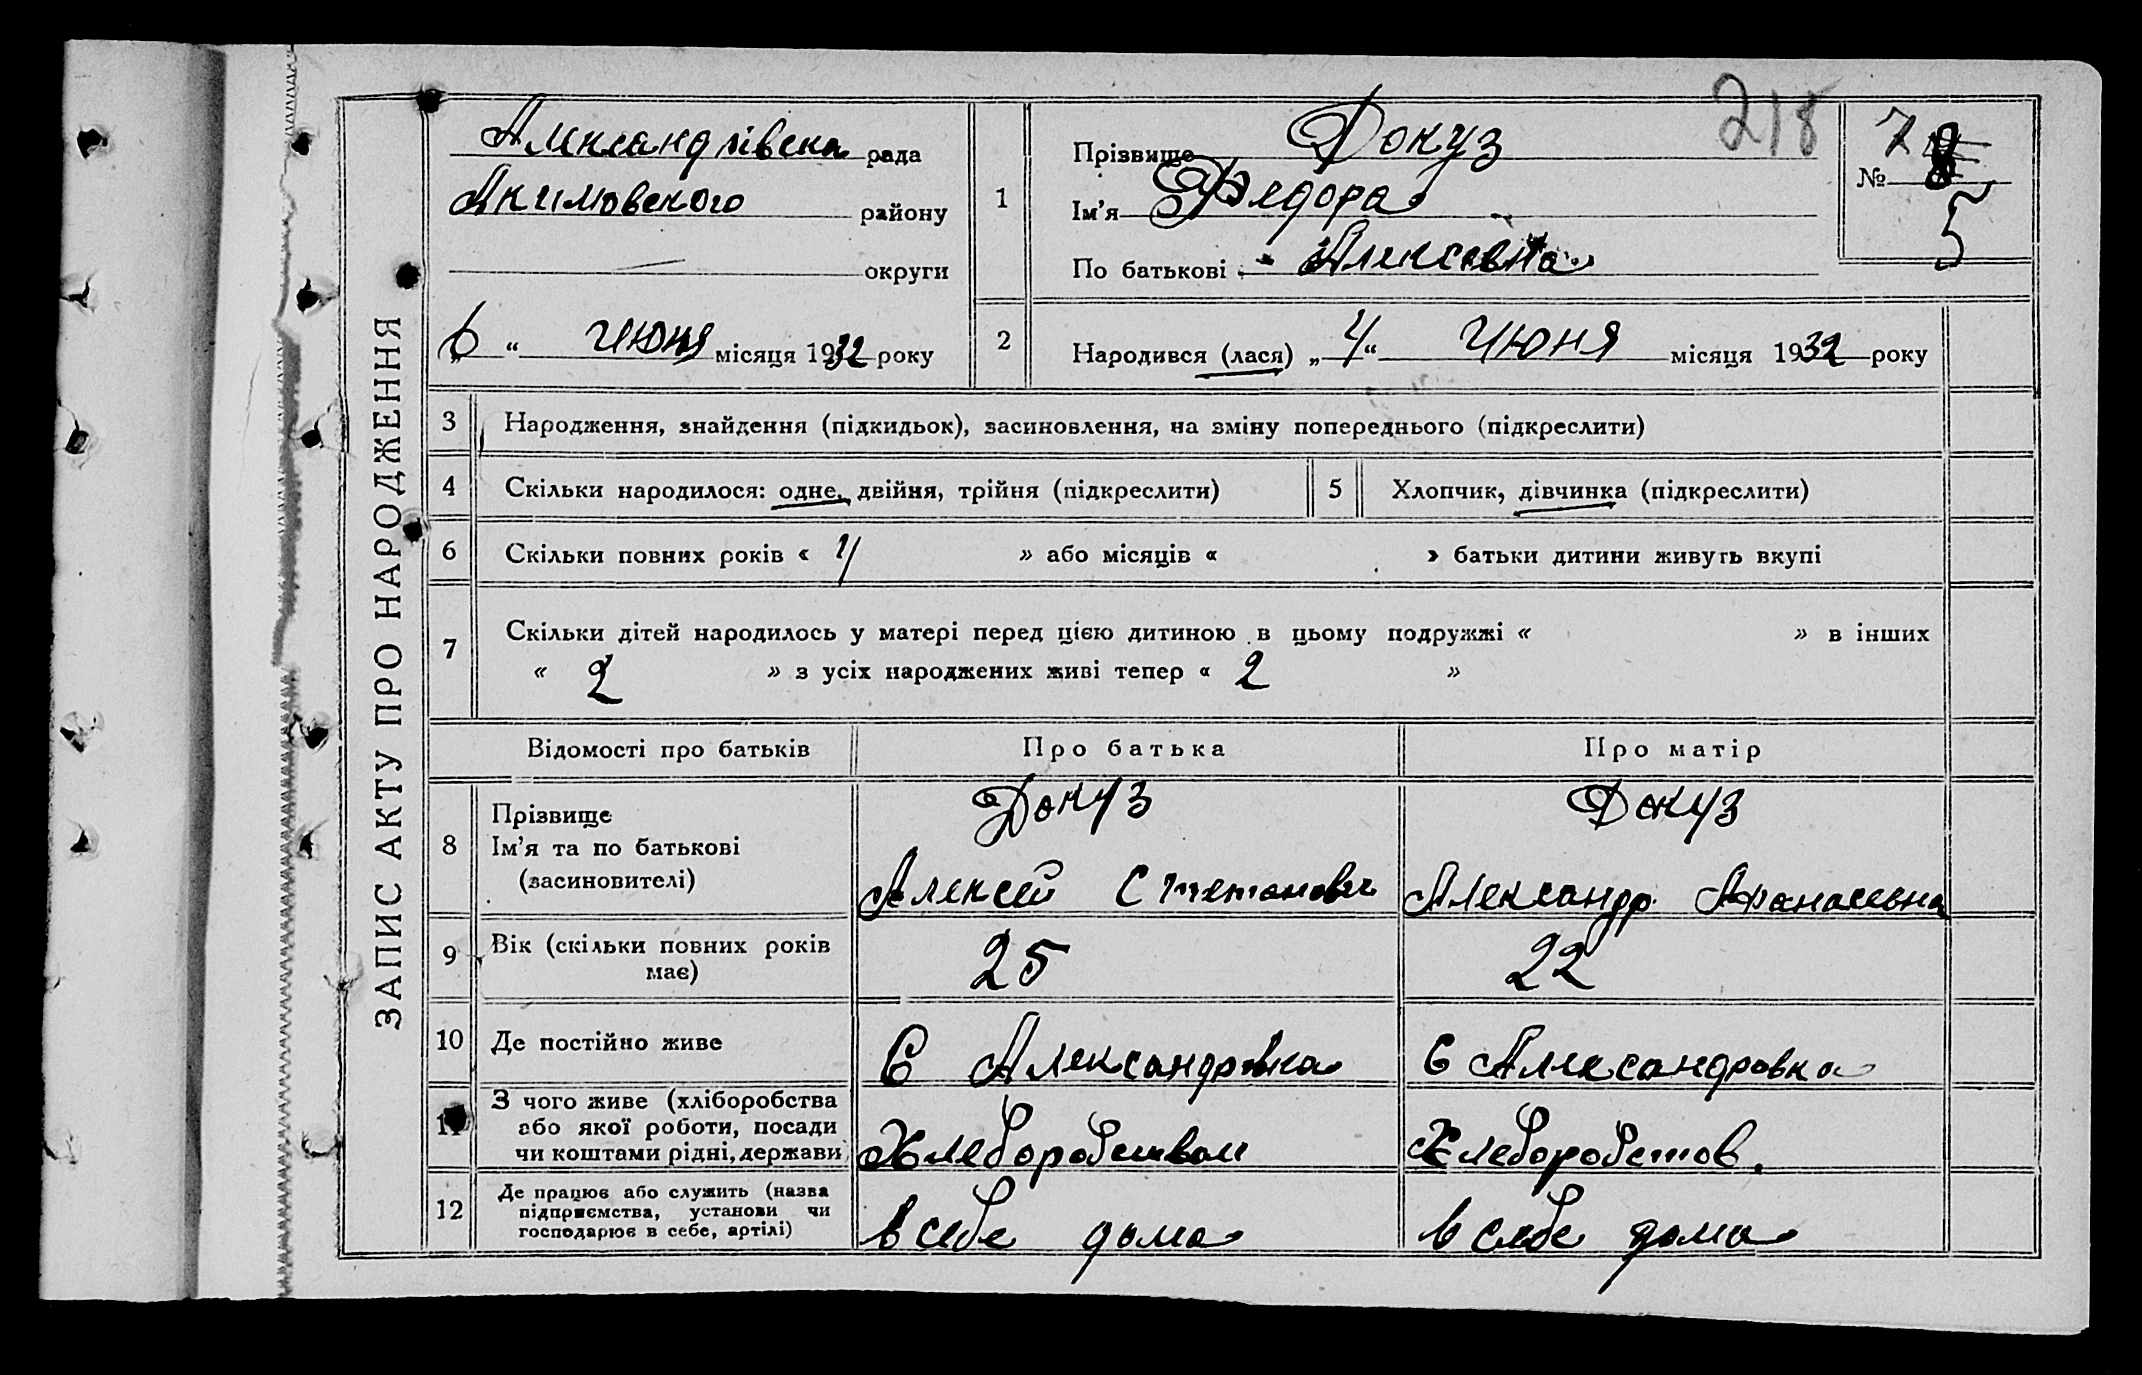 218
ЗАПИС АКТУ ПРО НАРОДЖЕННЯ
Александрівска рада
Акимовского району
округи
„6“ Июня місяця 1932 року
1
Прізвище Докуз
Ім’я Федора
По батькові Алексевна
№ 7
5
2
Народився (лася) „4“ Июня місяця 1932 року
3 Народження, знайдення (підкидьок), засиновлення, на зміну попереднього (підкреслити)
4 Скільки народилося: одне, двійня, трійня (підкреслити)
5 Хлопчик, дівчинка (підкреслити)
6 Скільки повних років « 4 » або місяців « » батьки дитини живуть вкупі
7 Скільки дітей народилось у матері перед цією дитиною в цьому подружжі « » в інших
« 2 » з усіх народжених живі тепер « 2 »
Відомості про батьків Про батька Про матір
8 Прізвище
Ім’я та по батькові
(засиновителі)
Докуз
Алексей Степанович
Докуз
Александр. Афанасевна
9 Вік (скільки повних років
має)
25
22
10 Де постійно живе
С Александровка
С Александровка
11 З чого живе (хліборобства
або якої роботи, посади
чи коштами рідні, держави
Хлеборобством
Хлеборобстов.
12 Де працює або служить (назва
підприємства, установи чи
господарює в себе, артілі)
в себе дома
в себе дома